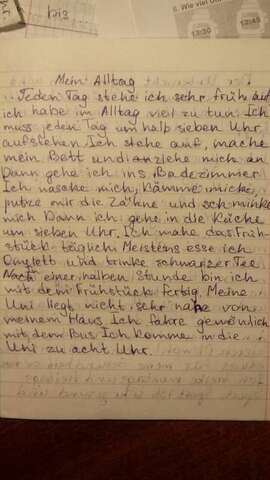 bis
6. Wie viel Uh
13:30
13:45
Mein Alltag
Jeden Tag stehe ich sehr früh auf
ich habe im Alltag viel zu tun. Ich
muss jeden Tag um halb sieben Uhr
aufstehen Ich stehe auf, mache
mein Bett und anziehe mich an
Dann gehe ich ins Badezimmer
Ich wasche mich, kämme miche,
putze mir die Zähne und schminke
mich Dann ich gehe in die Küche
um sieben Uhr. Ich mahe das Früh-
stück täglich Meistens esse ich
Omylett und trinke schwarzer Tee
Nach einer halben Stunde bin ich
mit dem Frühstück fertig. Meine
Uni liegt nicht sehr nahe von
meinem Haus Ich fahre gewönlich
mit dem Bus Ich komme in die
Uni zu acht Uhr.